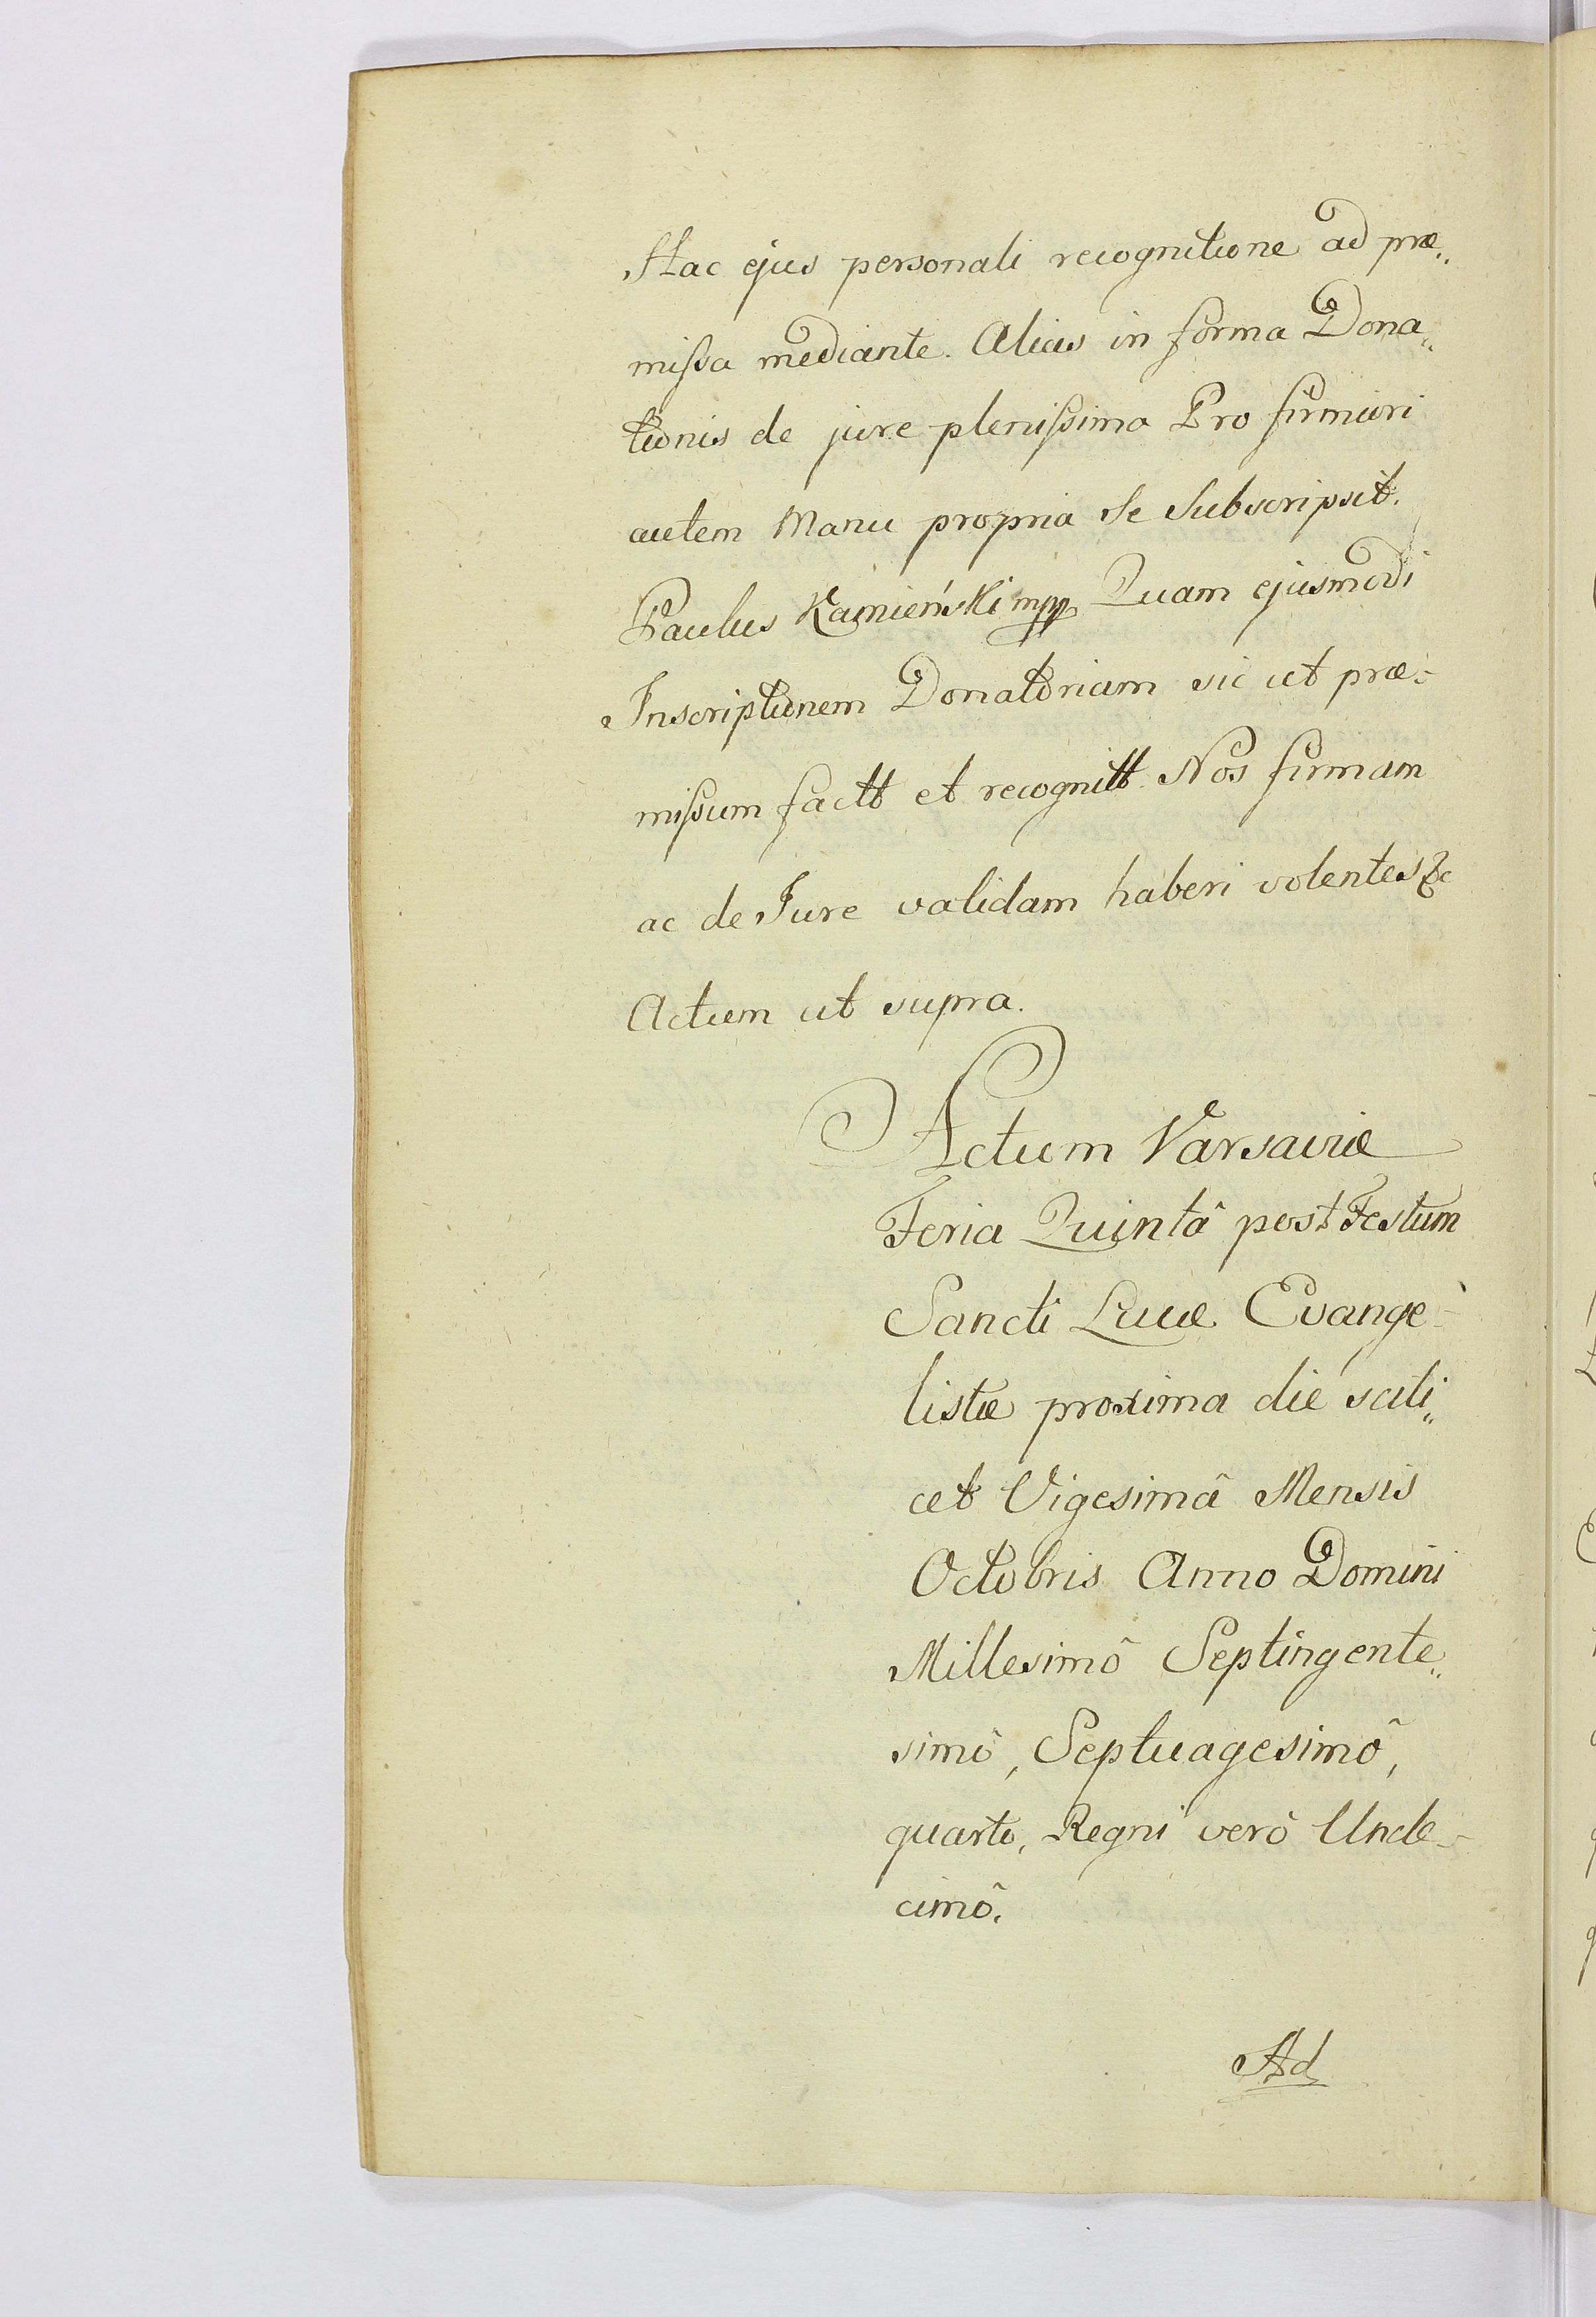 Hac ejus personali recognitione ad præ„
miſsa mediante. Alias in forma Dona„
tionis de jure pleniſsima Pro firmiori
autem Manu propria Se Subscripsit.
Paulus Kamieński mpp Quam ejusmodi
Inscriptionem Donatoriam sic ut præ-
miſsum factt et recognitt. Nos firmam
ac de Jure validam haberi volentes &c
Actum ut supra.
Actum Varsaviæ
Feria Quintâ post Festum
Sancti Lucæ Evange-
listæ proxima die scili„
cet Vigesimâ Mensis
Octobris Anno Domini
Millesimô Septingente„
simô, Septuagesimô,
quarto, Regni verò Unde-
cimô.
Ad